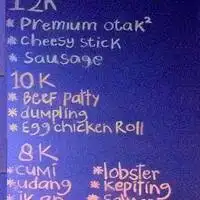 12K
* Premium otak²
* Cheesy stick
* Sausage
10 K
* Beef Patty
* dumpling
* Egg chicken Roll
8K
* cumi * lobster
* udang * kepiting
* ikan * Salmon